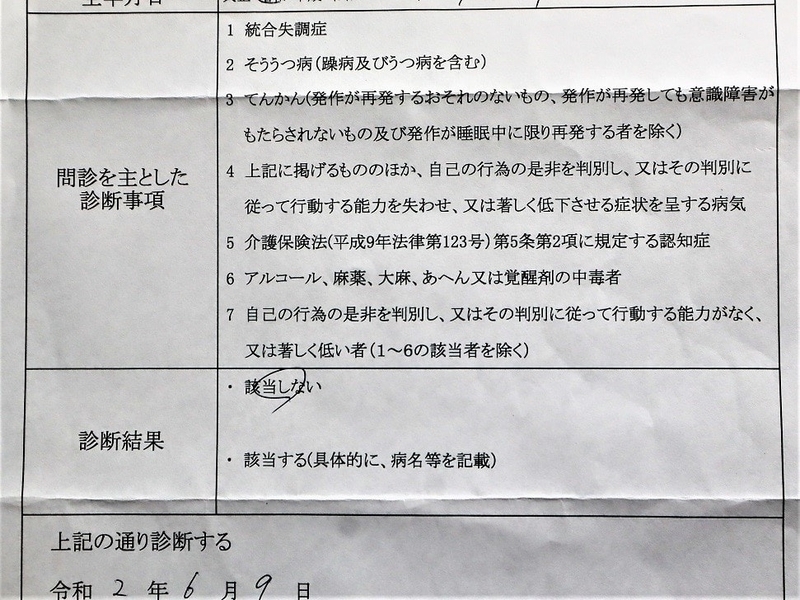 1 統合失調症
2 そううつ病(躁病及びうつ病を含む)
3 てんかん(発作が再発するおそれのないもの、発作が再発しても意識障害が
もたらされないもの及び発作が睡眠中に限り再発する者を除く)
問診を主とした
診断事項
4 上記に掲げるもののほか、自己の行為の是非を判別し、又はその判別に
従って行動する能力を失わせ、又は著しく低下させる症状を呈する病気
5 介護保険法(平成9年法律第123号)第5条第2項に規定する認知症
6 アルコール、麻薬、大麻、あへん又は覚醒剤の中毒者
7 自己の行為の是非を判別し、又はその判別に従って行動する能力がなく、
又は著しく低い者(1～6の該当者を除く)
診断結果
・ 該当しない
・ 該当する(具体的に、病名等を記載)
上記の通り診断する
令和 2 年 6 月 9 日